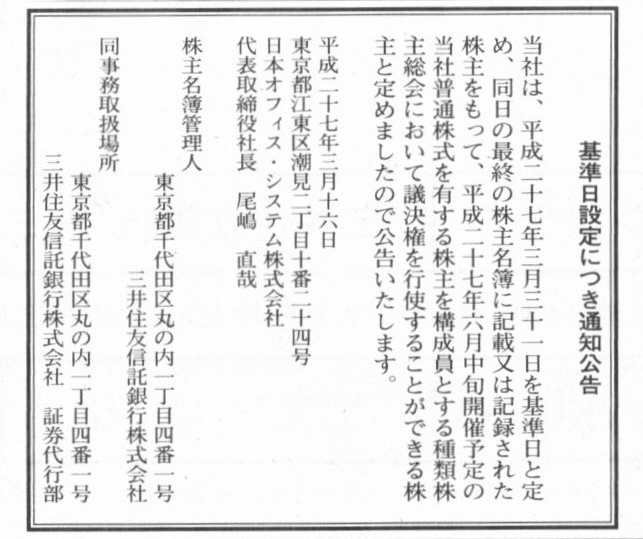 基準日設定につき通知公告
当社は、平成二十七年三月三十一日を基準日と定
め、同日の最終の株主名簿に記載又は記録された
株主をもって、平成二十七年六月中旬開催予定の
当社普通株式を有する株主を構成員とする種類株
主総会において議決権を行使することができる株
主と定めましたので公告いたします。
平成二十七年三月十六日
東京都江東区潮見二丁目十番二十四号
日本オフィス・システム株式会社
代表取締役社長　尾嶋　直哉
株主名簿管理人
東京都千代田区丸の内一丁目四番一号
三井住友信託銀行株式会社
同事務取扱場所
東京都千代田区丸の内一丁目四番一号
三井住友信託銀行株式会社　証券代行部